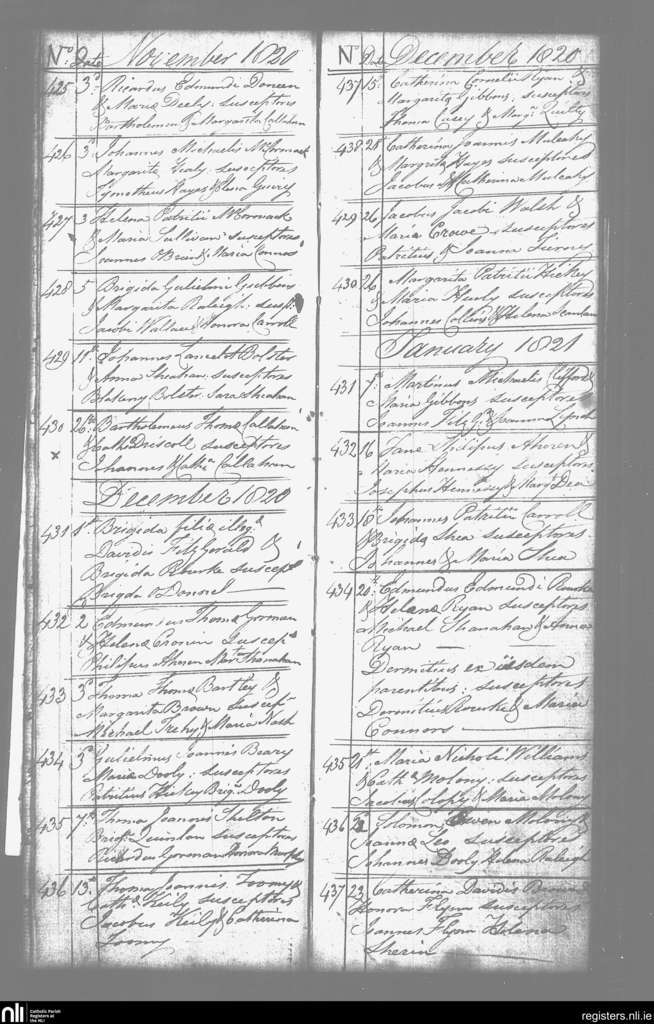 No Date November 1820
425 3d Ricardus Edmundi Doneen
& Maria Deely. susceptores
Bartholemeus & Margarita Callahan
426 3d Johannes Michaelis McCormack
Margarita Healy susceptores
Tymotheus Hayes & Elena
427 3 Helena Patritii McCormack
& Maria Sullivan susceptores
Joannes OBrien & Maria Connors
428 5 Brigida Gulielmi Gubbins
& Margarita Raleigh: suspt.
Jacobi Wallace & Honora Carroll
429 11th Johannes Lancelot Bolster
& Anna Sheahan. susceptores
Bolster. Sara Sheahan
430 26th Bartholemeus Thoma Callahan
& Cath Driscoll susceptores
Johannes & Catha Callahan
December 1820
431 1st Brigida filia
Davidis FitzGerald &
Brigida Rourke suscept
Brigda O Donnel
432 2 Edmundus Thoma Gorman
& Helena Cronin Suscep
Philipus Ahern Mart Shanahan
433 3d Thoma Thoma Bartley &
Margarita Brown suscept
Michael & Maria Nash
434 3d Gulielmus Joannis Beary
Maria Dooly: susceptores
Patritius Hickey Brigd Dooly
435 7th Thoma Joannis Shelton
Quinlan susceptores
Ricardus Gorman
436 13th Thomas Joannis Toomy &
Cath Keily susceptores
Jacobus Keily & Catherina
Toomy
No Date December 1820
437 15 Catherina Cornelii Ryan &
Margarita Gibbons: susceptores
Thoma Casey & Margt Quilty
438 20 Catherina Joannis Mulcahy
& Margrita Hayes susceptores
Jacobus & Catherina Mulcahy
429 26 Jacobus Jacobi Walsh &
Maria Crowe susceptores
Patritius & Joanna
430 26 Margarita Patritii Hickey
& Maria susceptores
Johannes Collins & Helena
January 1821
431 7th Martinus Michaelis Clifford &
Maria Gibbons susceptores
Joannes & Joanna Lynch
432 16 Jana Philipus Ahern &
Maria Hennessy susceptores
Josephus Hennessy & Margt Dea
433 18th Johannes Patritii Carroll
& Brigida Shea susceptores
Johannes & Maria Shea
434 20th Edmundus Edmundi Rourke
& Helena Ryan susceptores
Michael Shanahan & Honora
Ryan
Dermitius ex iisdem
parentibus: susceptores
Dermitius Rourke & Maria
Connors
435 21st Maria Nicholi Williams
& Cath Molony. susceptores
Jacobus & Maria Molony
436 Solomon Owen Molony &
Joanna Leo susceptores
Johannes Dooly Helena Raleigh
437 23 Catherina Davidis
Honora Flynn susceptores
Joannes Flynn Helena
Sherin
nli Catholic Parish
Registers at
the NLI
registers.nli.ie